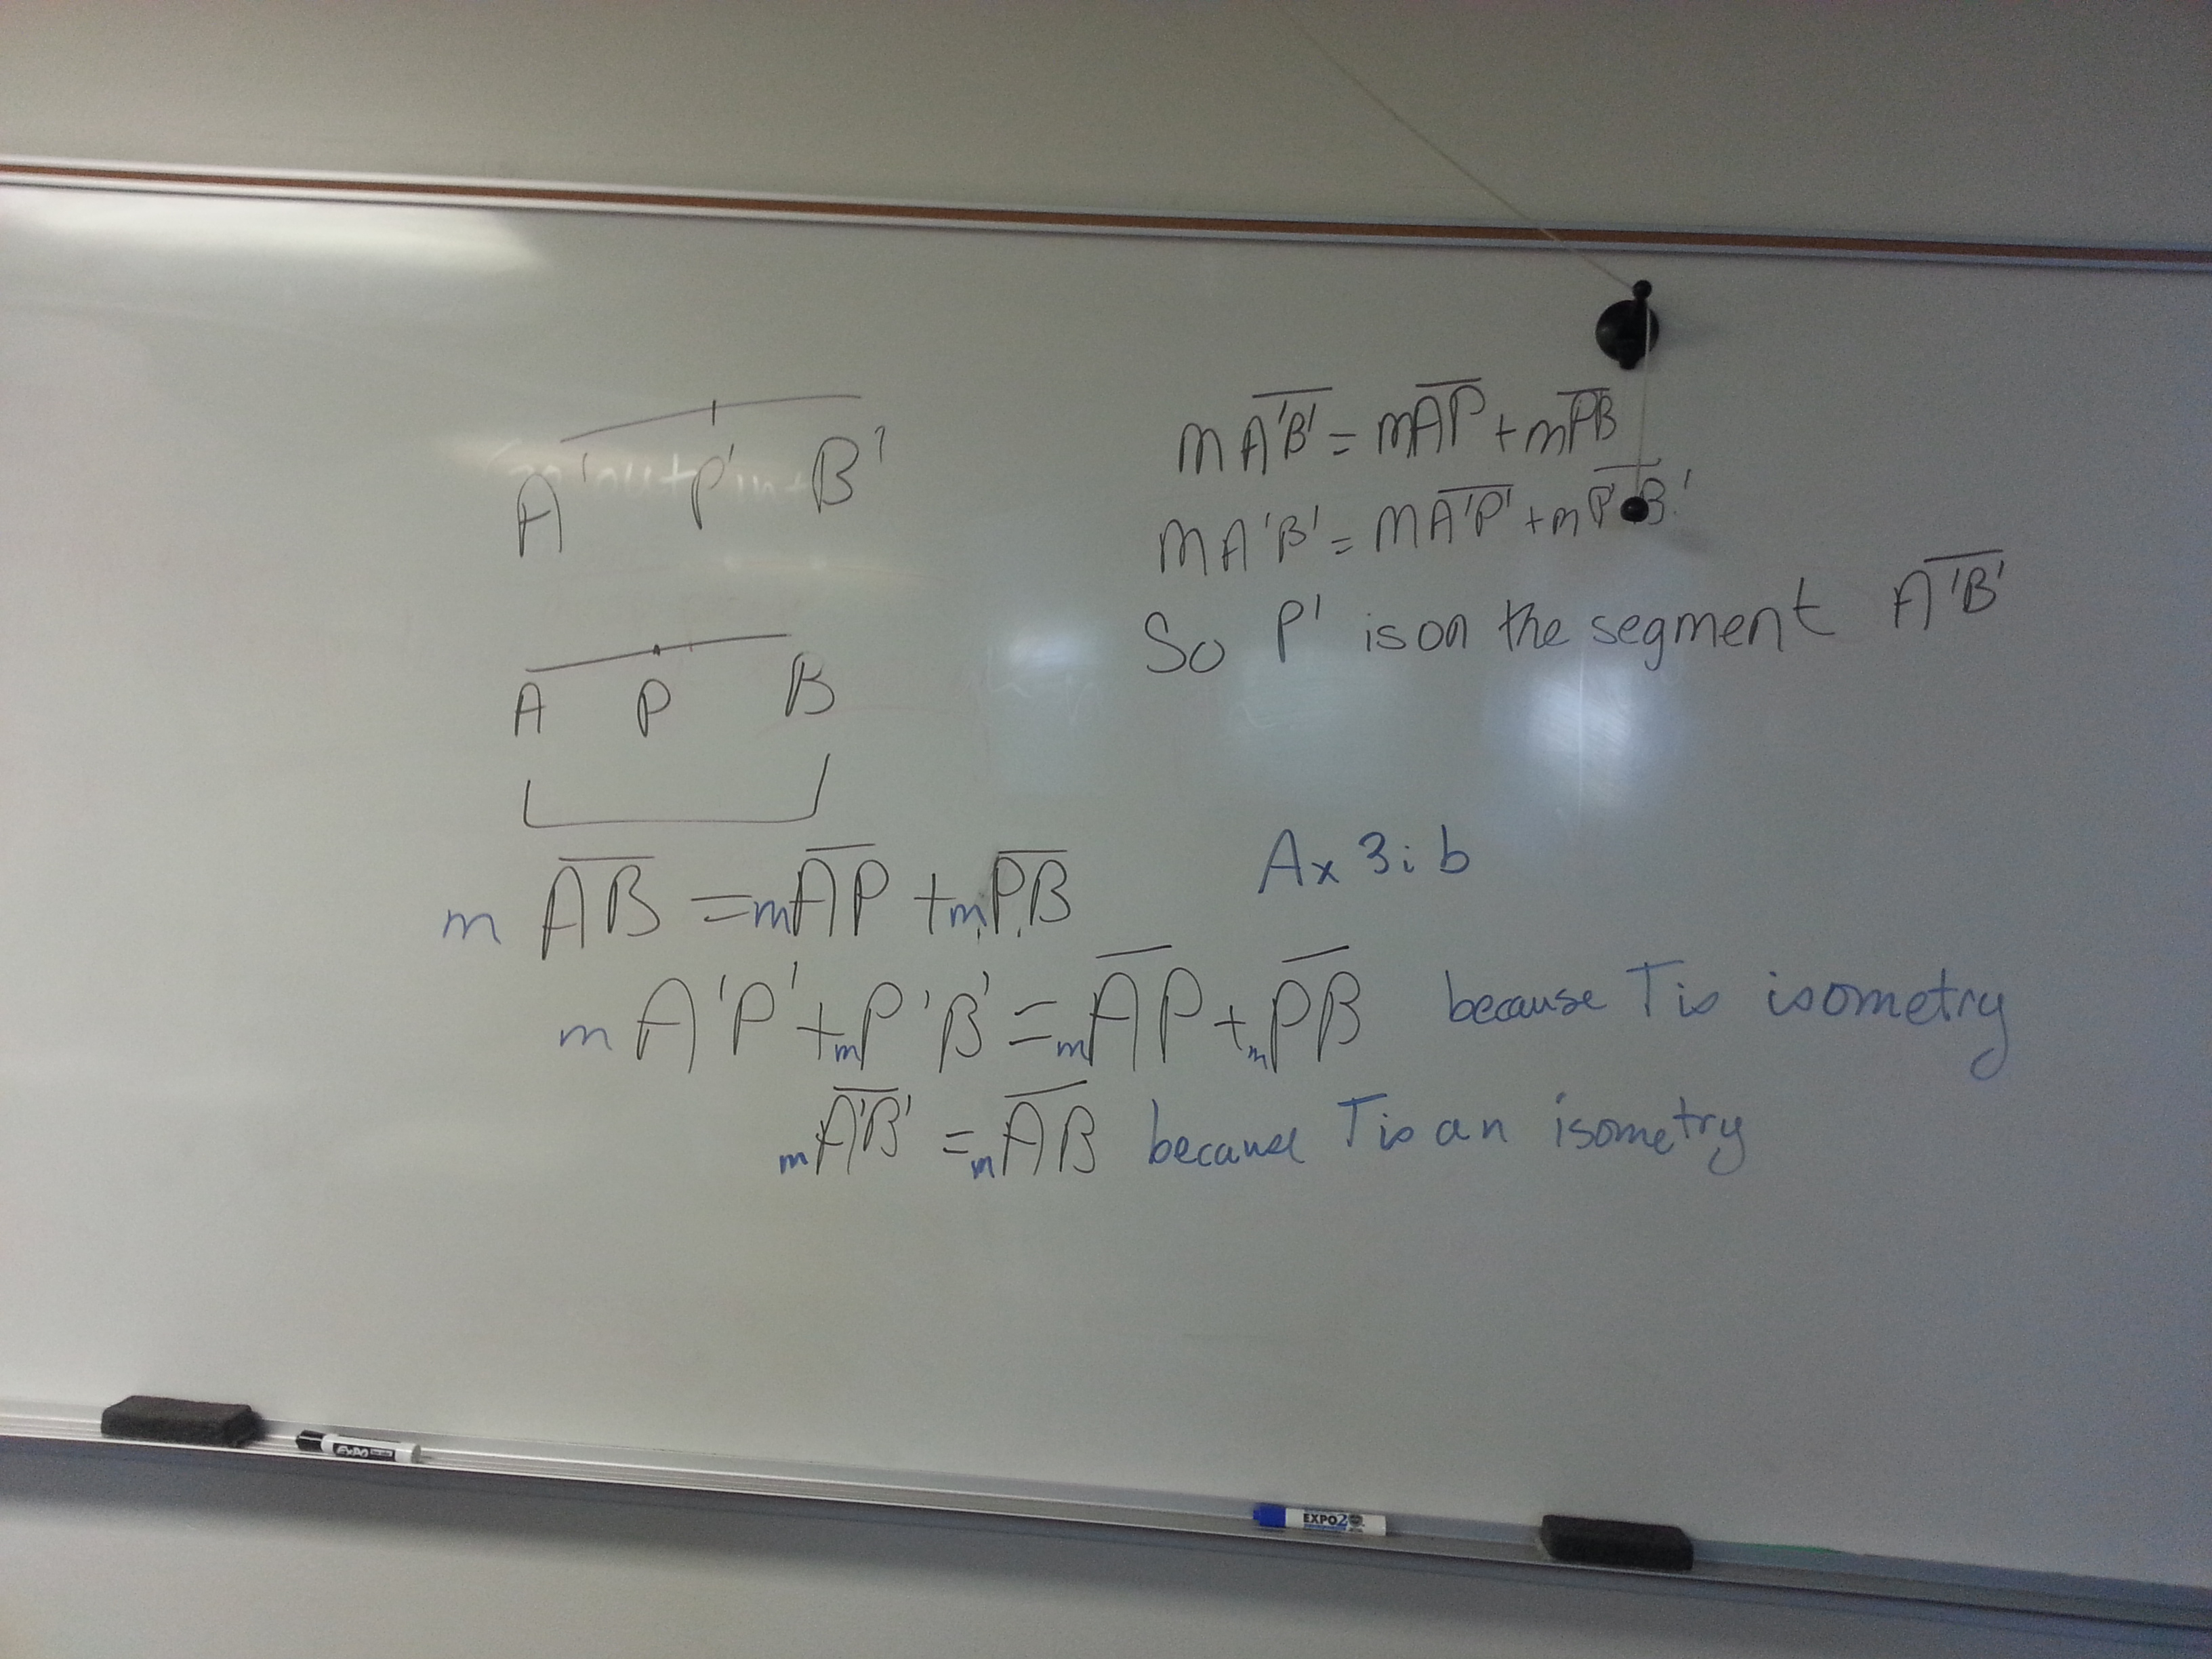 A' P' B'
A P B
m A̅B̅ = mA̅P̅ + mP̅B̅
m A'P' + mP'B' = mA̅P̅ + mP̅B̅ because T is isometry
mA̅'B̅' = mA̅B̅ because T is an isometry
mA̅'B̅' = mA̅P̅ + mP̅B̅
mA'B' = mA̅'P̅' + mP̅'B̅'
So P' is on the segment A̅'B̅'
Ax 3ib
EXPO
EXPO2